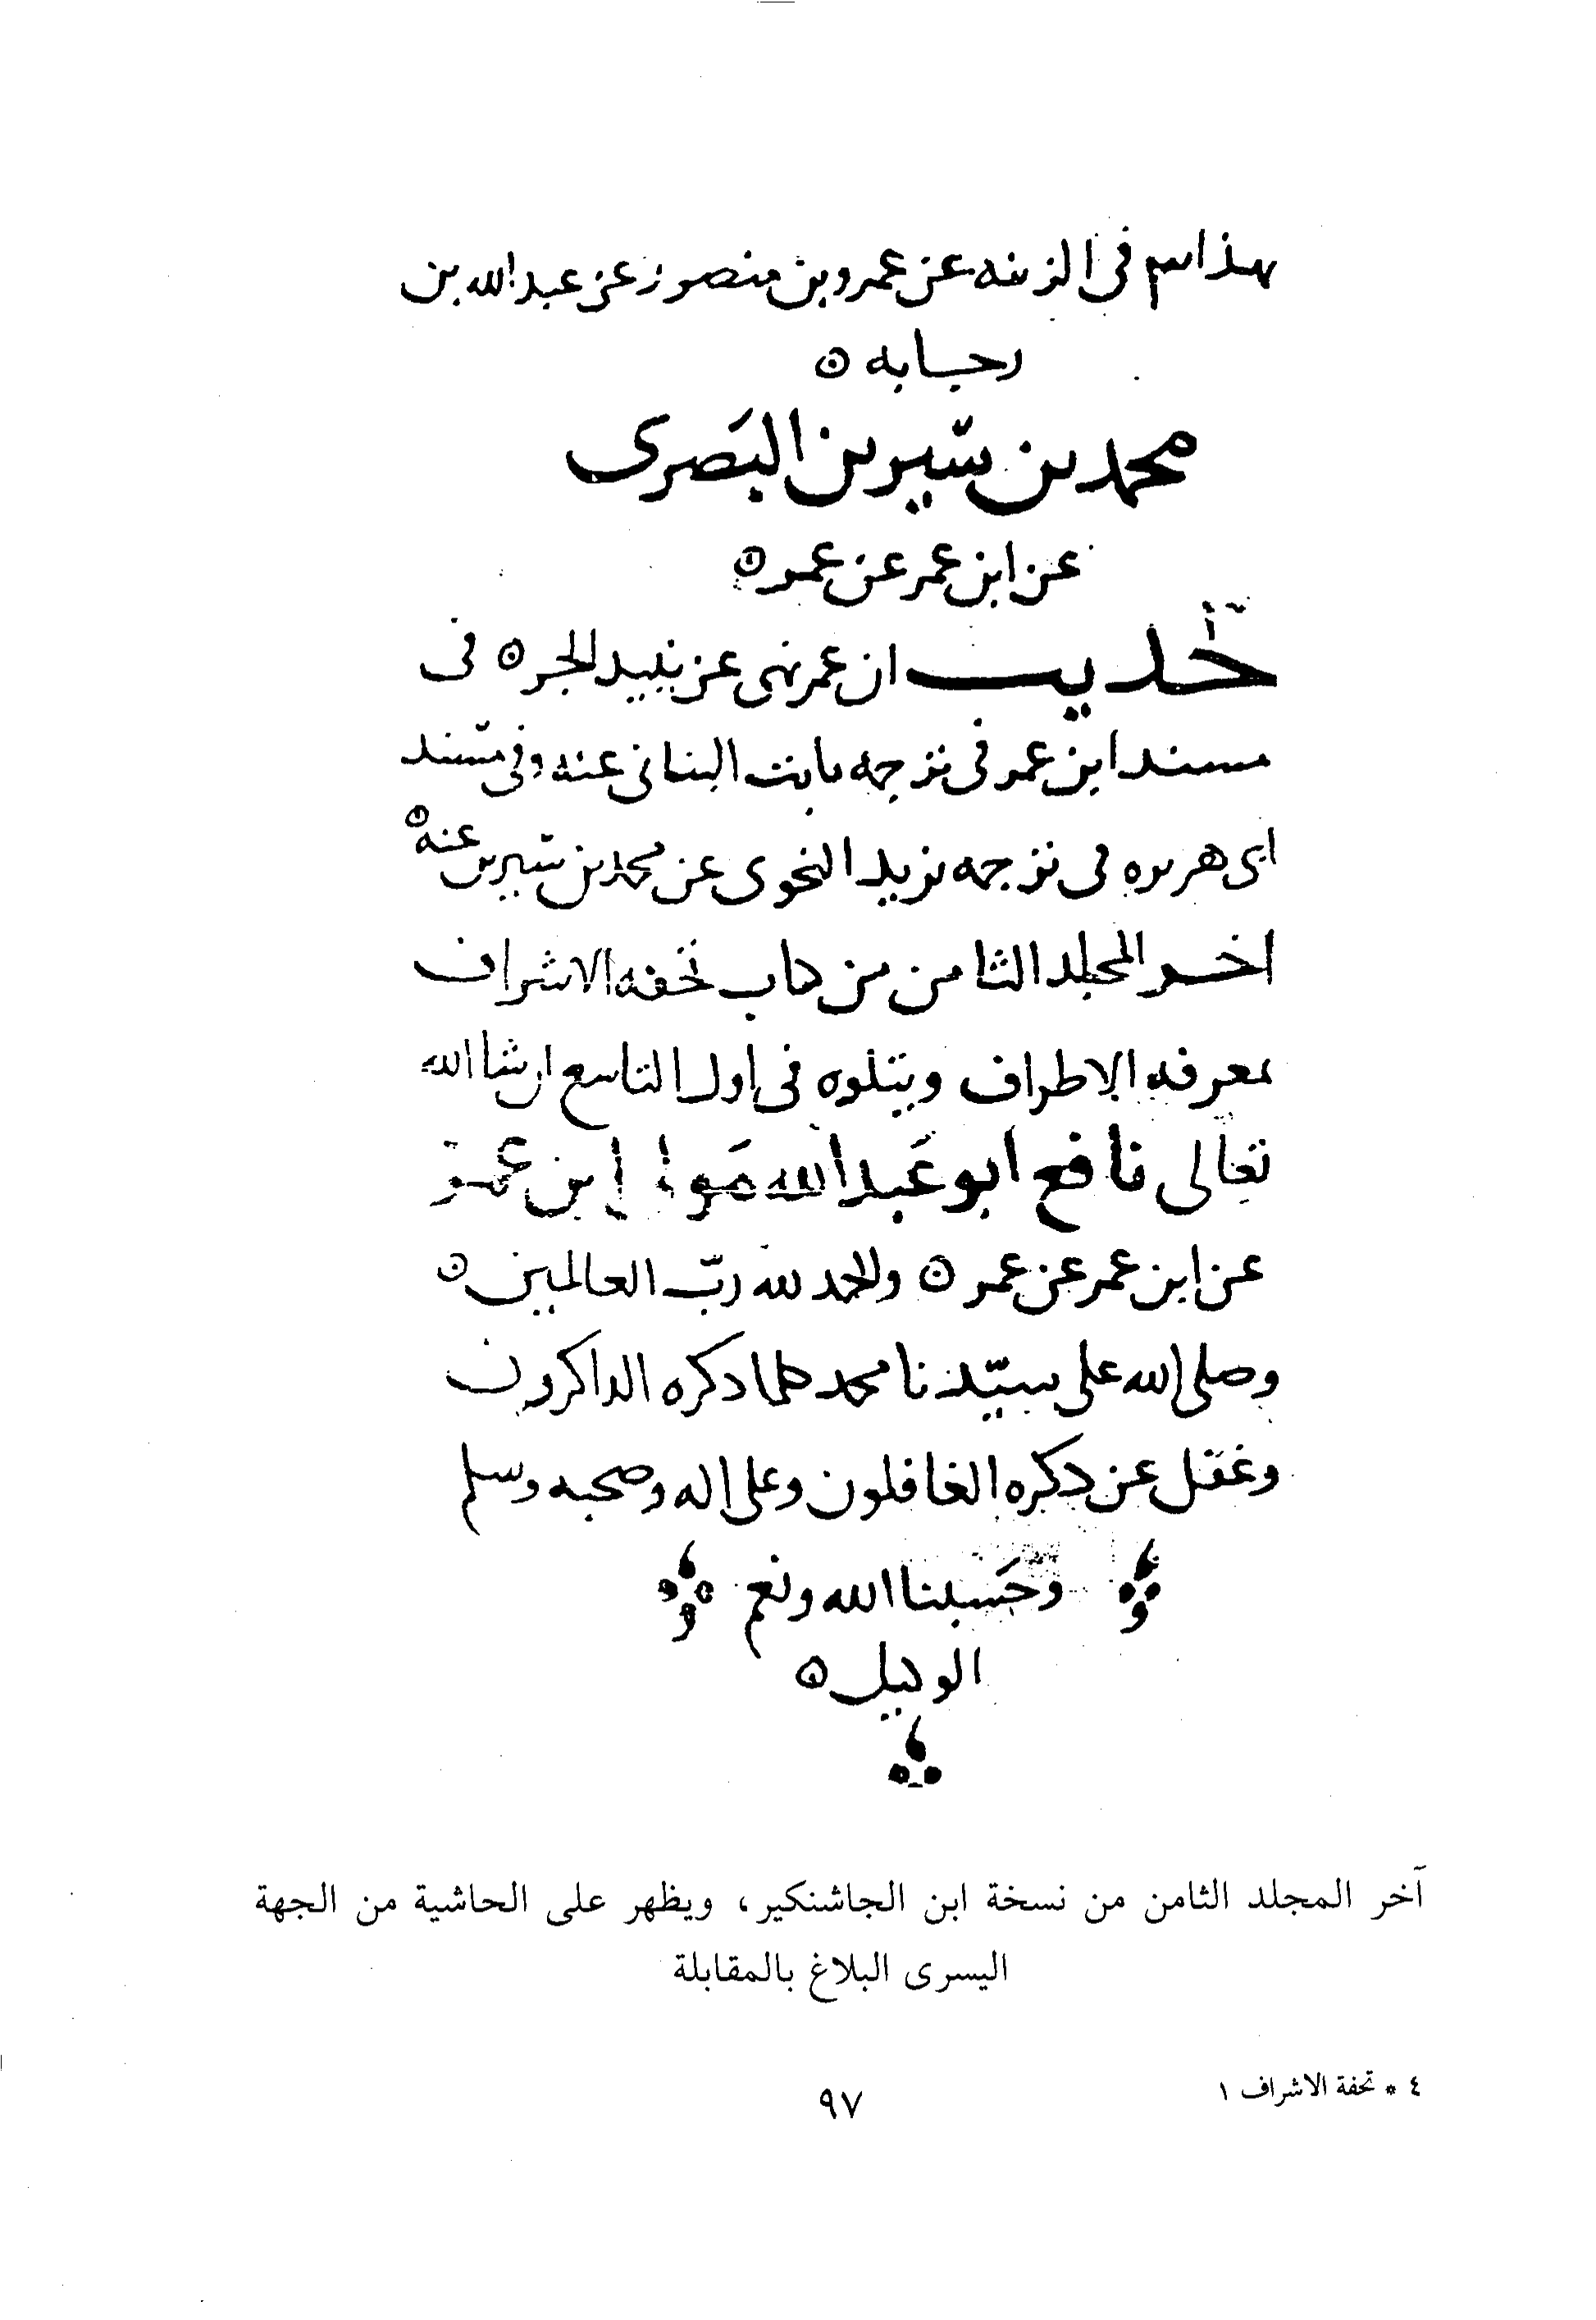 بهذا س في الزينه عن عمرو بن منصور عن عبد الله بن
رجا به ۞
محمد بن سيرين البَصرى
عن ابن عمر عن عمر ۞
حديث ان عمر نهى عن نبيد الجر ۞ فى
مسند ابن عمر فى ترجمه ثابت البنانى عنه وفى مسند
ابى هريره فى ترجمه يزيد النحوى عن محمد بن سيرين عنه ۞
اخر المجلد الثامن من كتاب تحفه الاشراف
بمعرفه الاطراف ويتلوه فى اول التاسع ان شا الله
تعالى نافع ابو عَبد الله مَولى ابن عمر
عن ابن عمر عن عمر ۞ والحمد لله ربّ العالمين ۞
وصلى الله على سيّدنا محمد كلما دكره الداكرون
وغفل عن دكره الغافلون وعلى اله وصحبه وسلم
وحَسبنا الله ونعم
الوكيل ۞
آخر المجلد الثامن من نسخة ابن الجاشنكير، ويظهر على الحاشية من الجهة
اليسرى البلاغ بالمقابلة
٤ * تحفة الاشراف ١
٩٧